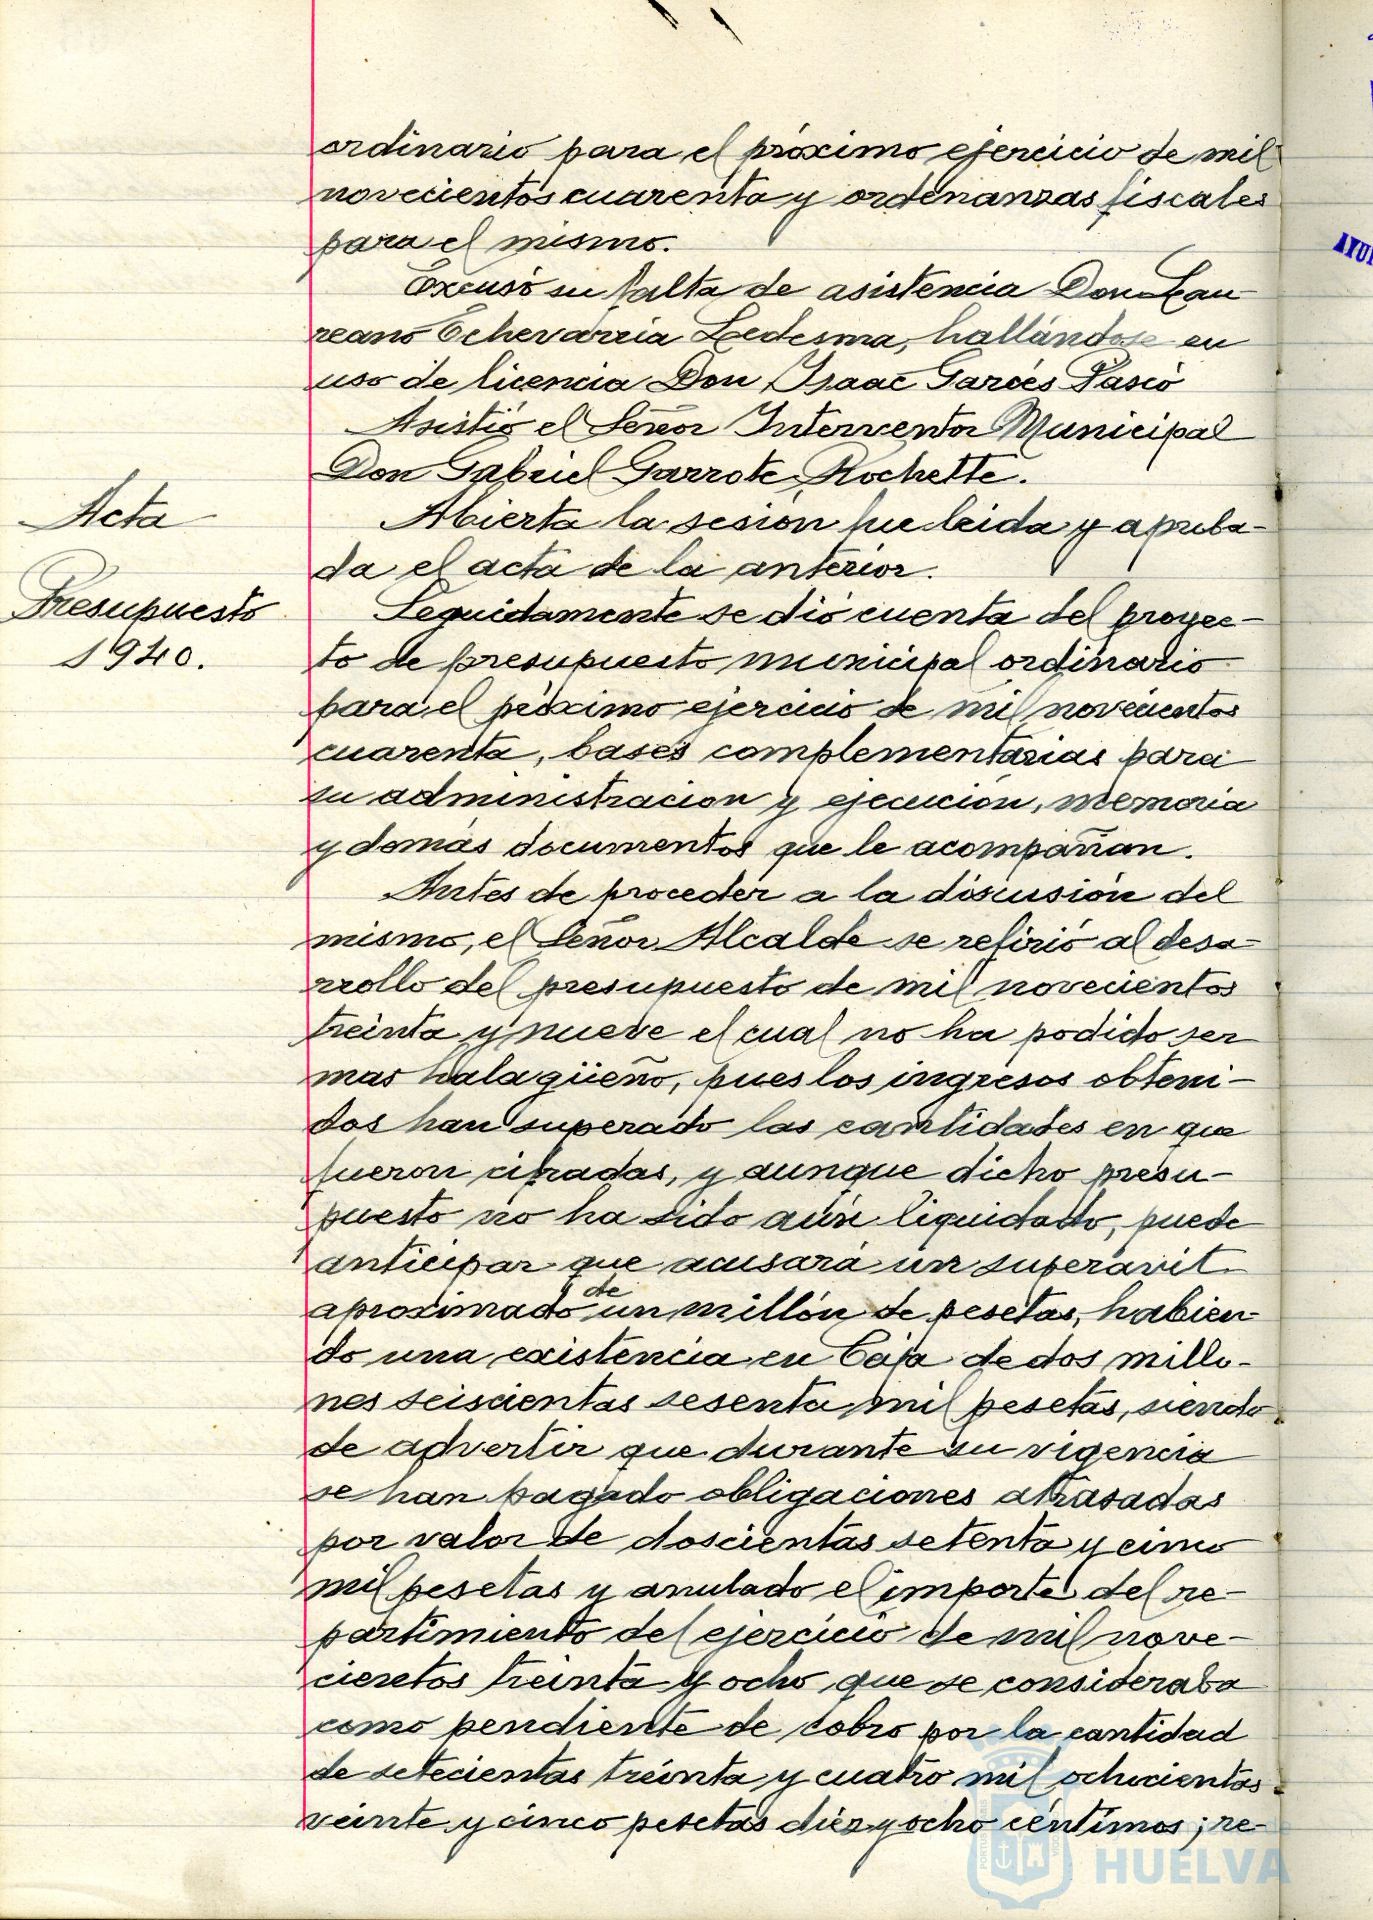 ordinario para el próximo ejercicio de mil
novecientos cuarenta y ordenanzas fiscales
para el mismo.
Excusó su falta de asistencia Don Lau-
reano Echevarria Ledesma, hallándose en
uso de licencia Don Isaac Garcés Pascó
Asistió el Señor Interventor Municipal
Don Gabriel Garrote Rochette.
Acta
Abierta la sesión fue leida y aproba-
da el acta de la anterior.
Presupuesto
1940.
Seguidamente se dió cuenta del proyec-
to de presupuesto municipal ordinario
para el próximo ejercicio de mil novecientos
cuarenta, bases complementarias para
su administración y ejecución, memoria
y demás documentos que le acompañan.
Antes de proceder a la discusión del
mismo, el Señor Alcalde se refirió al desa-
rrollo del presupuesto de mil novecientos
treinta y nueve el cual no ha podido ser
mas halagüeño, pues los ingresos obteni-
dos han superado las cantidades en que
fueron cifradas, y aunque dicho presu-
puesto no ha sido aún liquidado, puede
anticipar que acusará un superávit
aproximado de un millón de pesetas, habien-
do una existencia en Caja de dos millo-
nes seiscientas sesenta mil pesetas, siendo
de advertir que durante su vigencia
se han pagado obligaciones atrasadas
por valor de doscientas setenta y cinco
mil pesetas y anulado el importe del re-
partimiento del ejercicio de mil nove-
cientos treinta y ocho que se consideraba
como pendiente de cobro por la cantidad
de setecientas treinta y cuatro mil ochocientas
veinte y cinco pesetas diez y ocho céntimos; re-
HUELVA